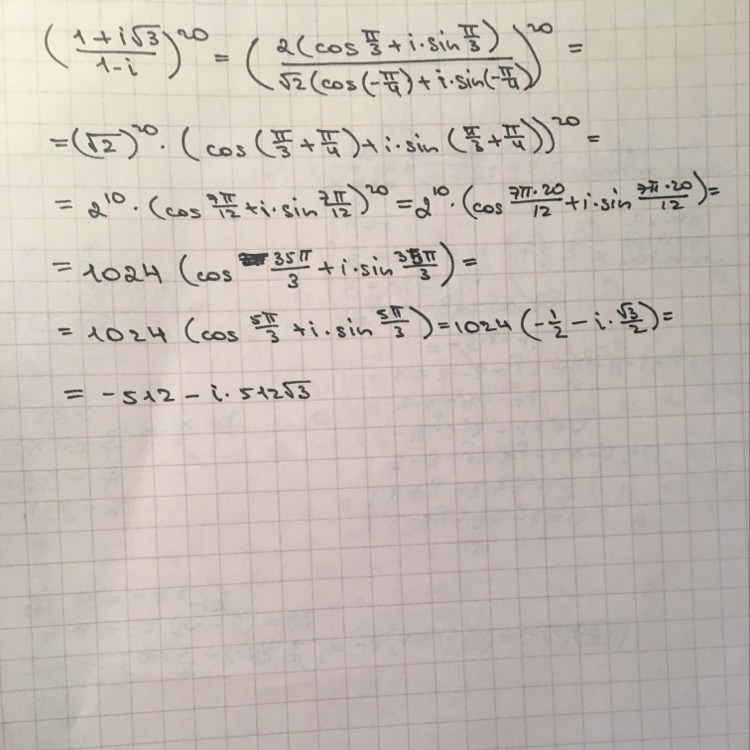 ((1+i√3)/(1-i))^20 = ((2(cos π/3 + i·sin π/3))/(√2(cos(-π/4)+i·sin(-π/4))))^20 =
=(√2)^20 · (cos(π/3+π/4)+i·sin(π/3+π/4))^20 =
= 2^10 · (cos 7π/12 + i·sin 7π/12)^20 = 2^10 · (cos 7π·20/12 + i·sin 7π·20/12) =
= 1024 (cos 35π/3 + i·sin 35π/3) =
= 1024 (cos 5π/3 + i·sin 5π/3) = 1024 (-1/2 - i·√3/2) =
= -512 - i·512√3